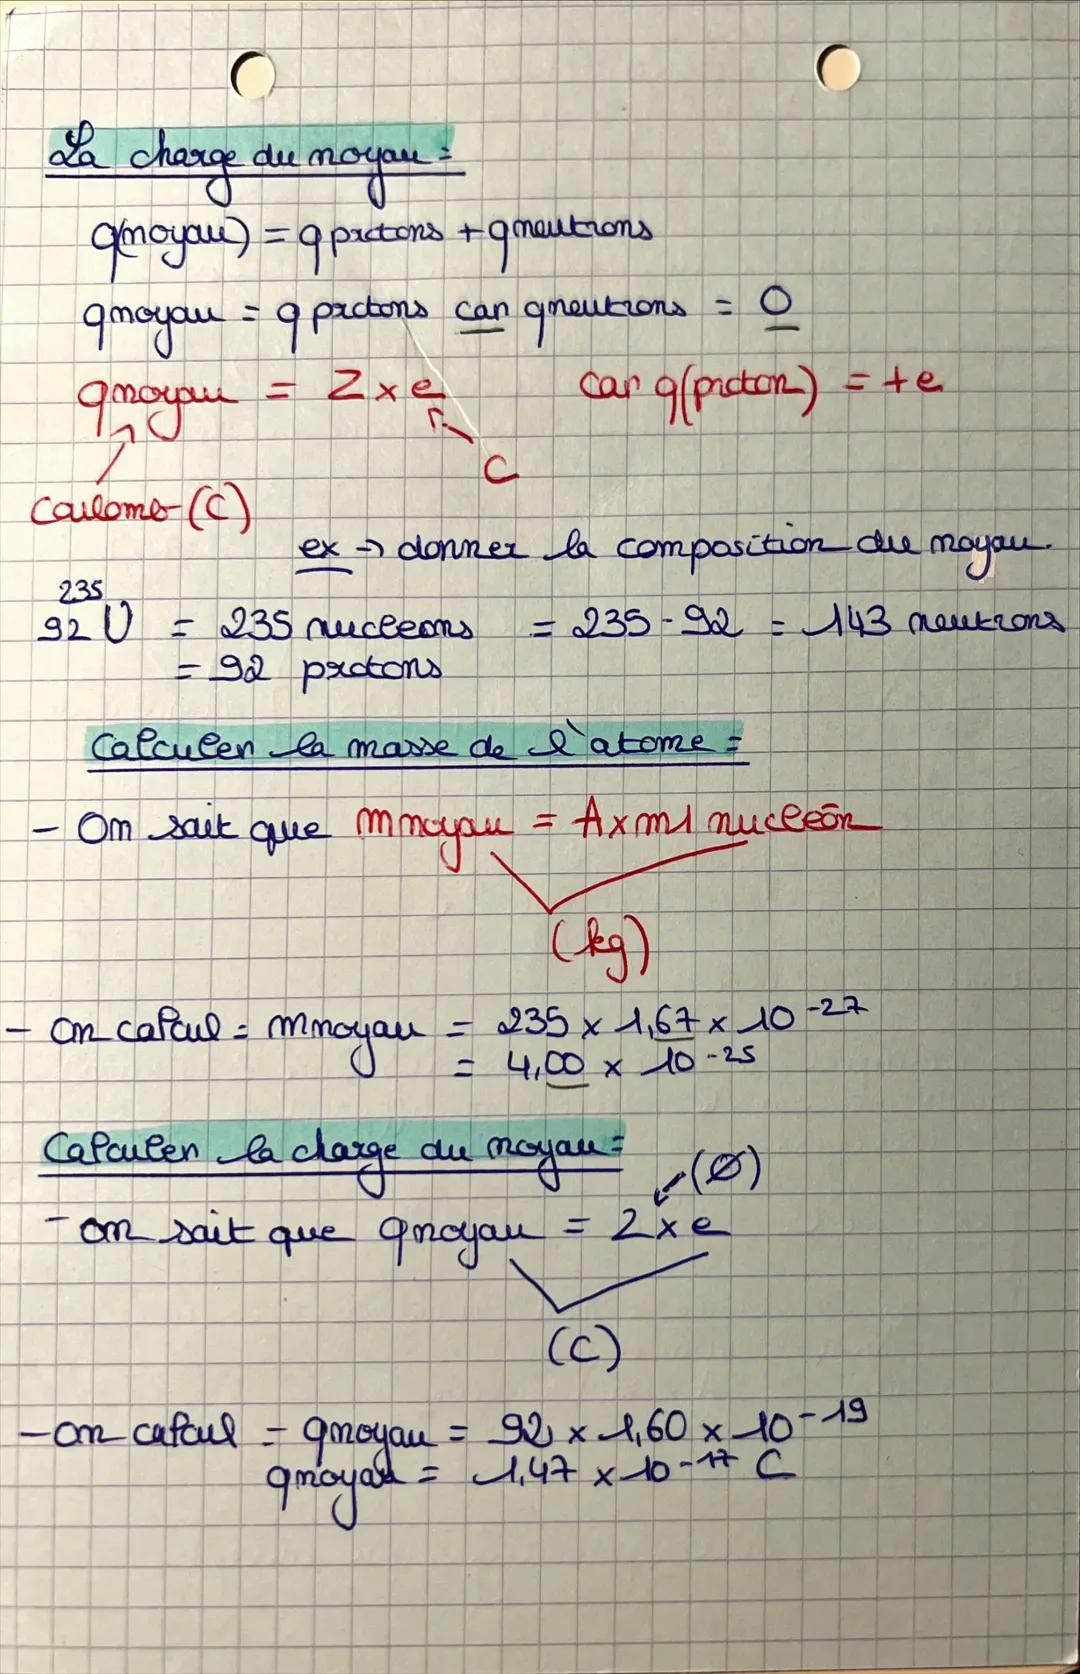 La charge du noyau :
q(noyau) = q protons + q neutrons
q noyau = q protons car q neutrons = 0
q noyau = Z x e car q(proton) = + e
C
Coulomb (C)
ex → donner la composition du noyau.
235
92 U = 235 nucleons = 235 - 92 = 143 neutrons
= 92 protons
Calculer la masse de l'atome :
- On sait que m noyau = A x m 1 nucléon
(kg)
- on calcul : m noyau = 235 x 1,67 x 10 -27
= 4,00 x 10 -25
Calculer la charge du noyau :
(Ø)
- on sait que q noyau = Z x e
(C)
- on calcul - q noyau = 92 x 1,60 x 10 -19
q noyau = 1,47 x 10 -17 C